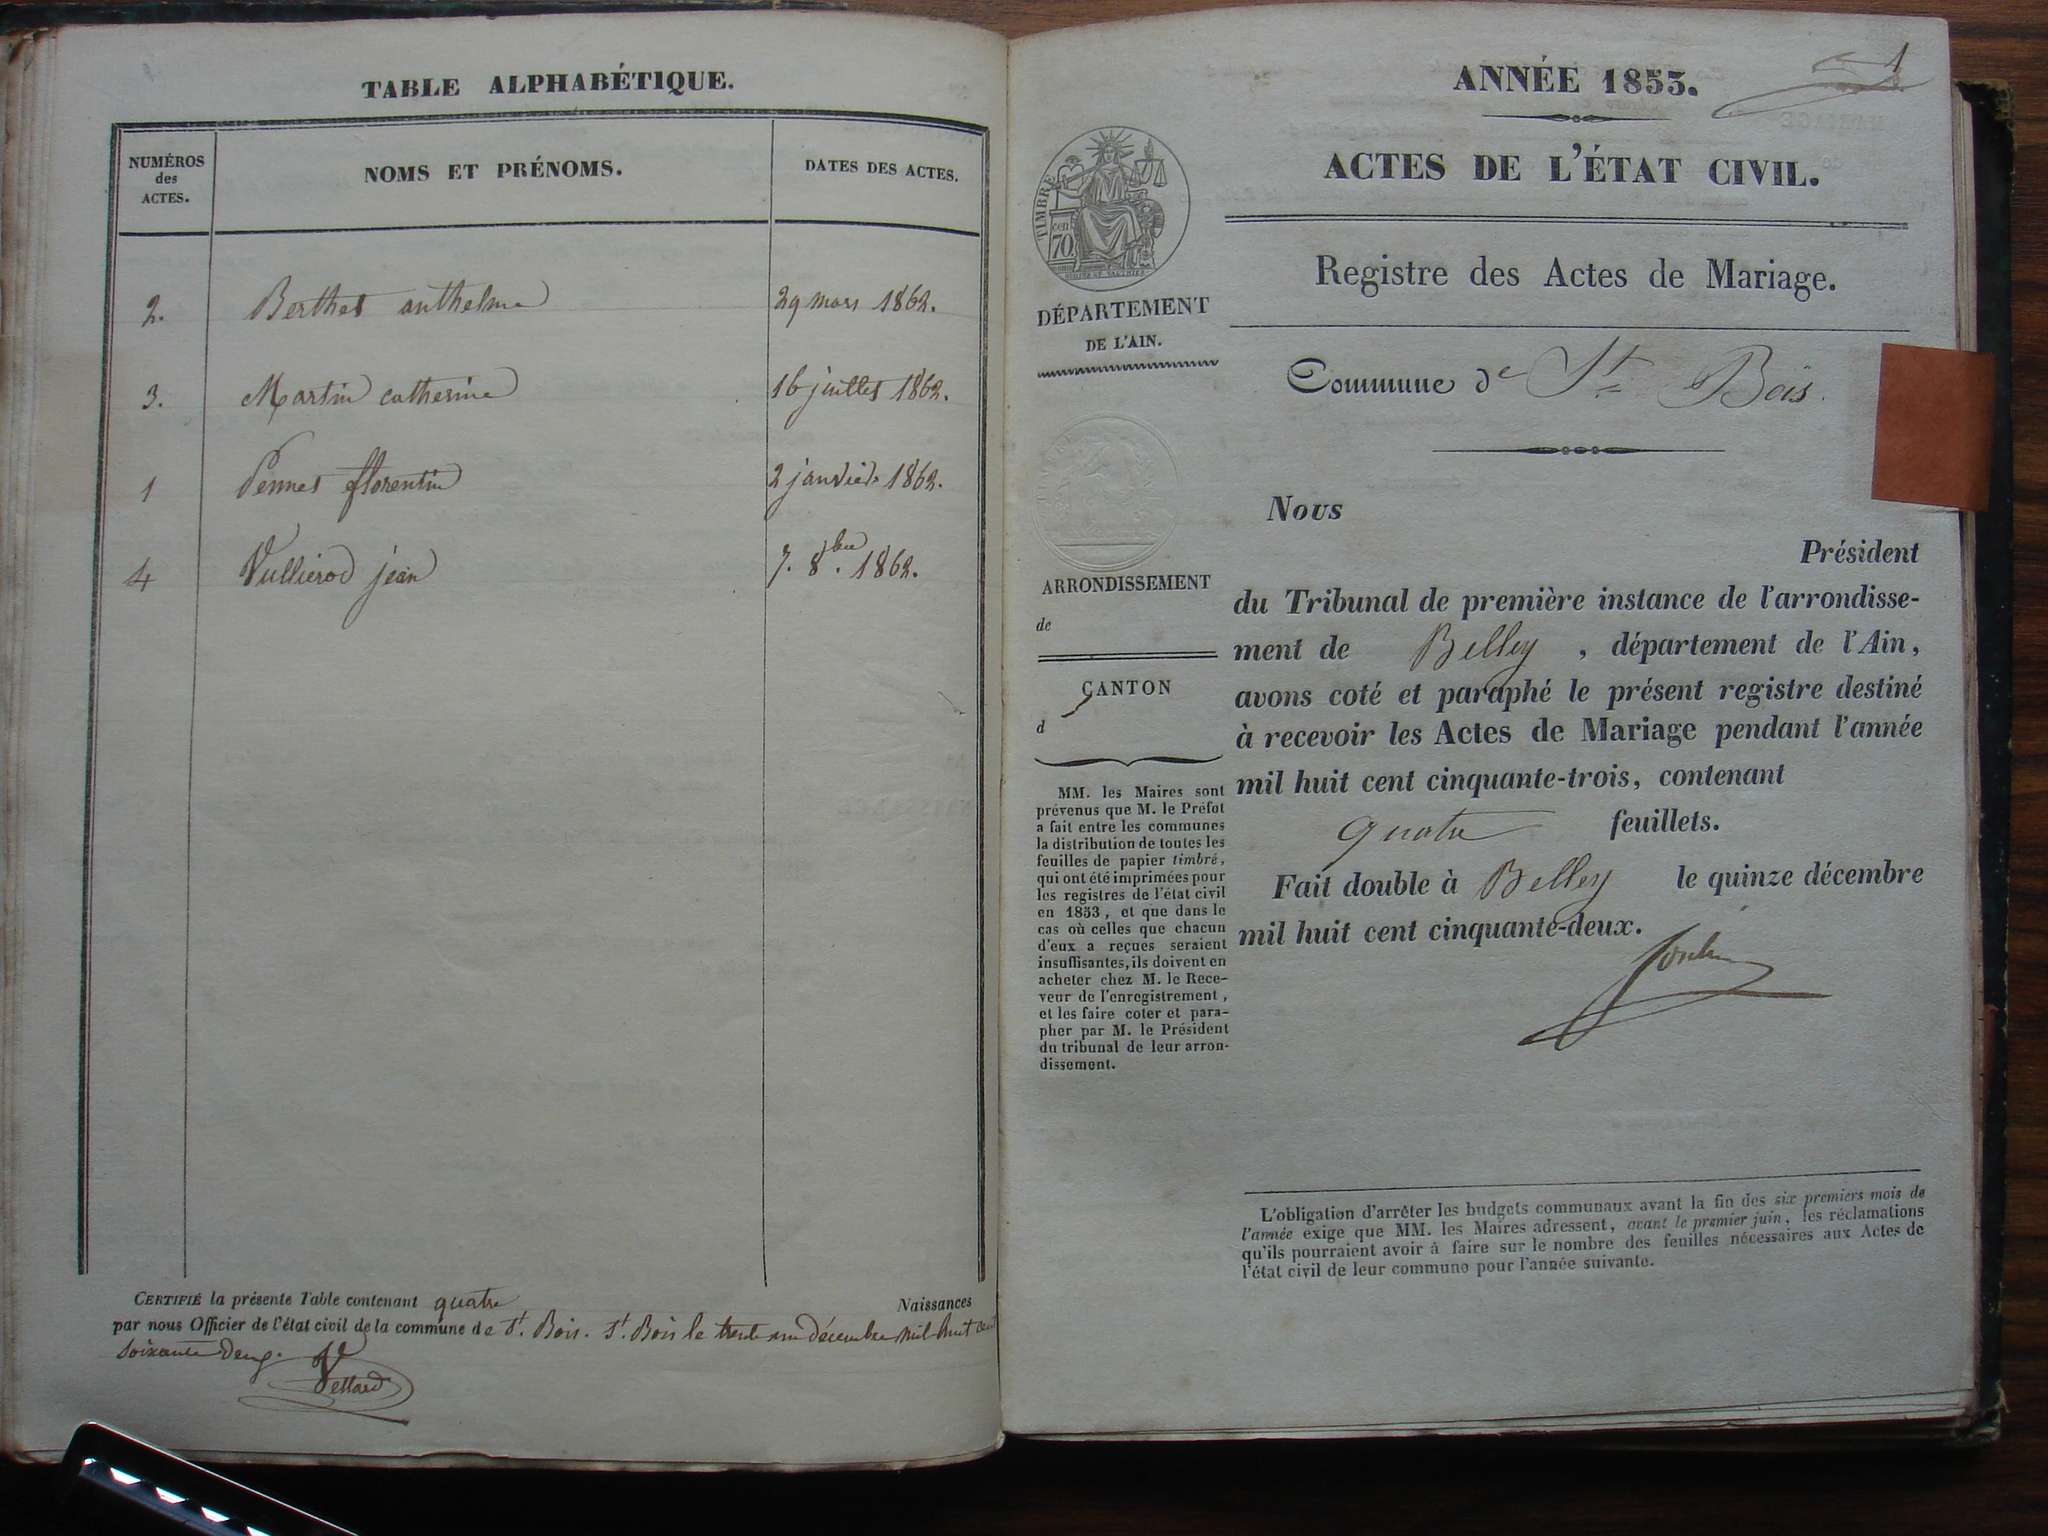 TABLE ALPHABÉTIQUE.
NUMÉROS
des
ACTES.
NOMS ET PRÉNOMS.
DATES DES ACTES.
2. Berthet anthelme 29 mars 1862.
3. Martin catherine 16 juillet 1862.
1 Pennet florentin 2 janvier 1862.
4 Vullierod jean 7. 8bre. 1862.
CERTIFIÉ la présente Table contenant quatre Naissances
par nous Officier de l'état civil de la commune de St. Bois. St. Bois le trente un décembre mil huit cent
soixante deux.
Vettard
1
ANNÉE 1853.
ACTES DE L'ÉTAT CIVIL.
Registre des Actes de Mariage.
Commune de St Bois.
TIMBRE
cen
70
DÉPARTEMENT
DE L'AIN.
ARRONDISSEMENT
de
CANTON
d
MM. les Maires sont
prévenus que M. le Préfet
a fait entre les communes
la distribution de toutes les
feuilles de papier timbré,
qui ont été imprimées pour
les registres de l'état civil
en 1853, et que dans le
cas où celles que chacun
d'eux a reçues seraient
insuffisantes, ils doivent en
acheter chez M. le Rece-
veur de l'enregistrement,
et les faire coter et para-
pher par M. le Président
du tribunal de leur arron-
dissement.
Nous
Président
du Tribunal de première instance de l'arrondisse-
ment de Belley, département de l'Ain,
avons coté et paraphé le présent registre destiné
à recevoir les Actes de Mariage pendant l'année
mil huit cent cinquante-trois, contenant
quatre feuillets.
Fait double à Belley le quinze décembre
mil huit cent cinquante-deux.
L'obligation d'arrêter les budgets communaux avant la fin des six premiers mois de
l'année exige que MM. les Maires adressent, avant le premier juin, les réclamations
qu'ils pourraient avoir à faire sur le nombre des feuilles nécessaires aux Actes de
l'état civil de leur commune pour l'année suivante.